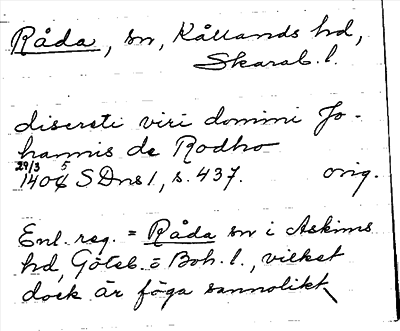 Råda, sn, Kållands hd,
Skarab. l.
discreti viri domini Jo-
hannis de Rodho
29/3 5
1404 SDns 1, s. 437. orig.
Enl. reg. = Råda sn i Askims
hd, Göteb. o Boh. l., vilket
dock är föga sannolikt